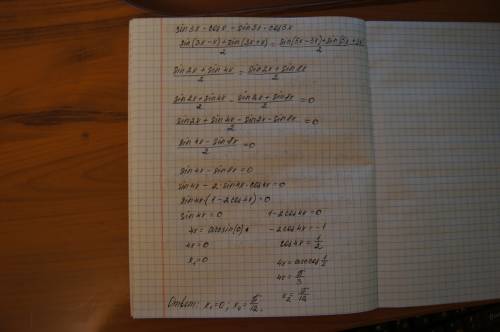 sin3x · cosx = sin3x · cos5x
sin(3x-x)+sin(3x+x)/2 = sin(5x-3x)+sin(5x+3x)/2
sin2x + sin4x/2 = sin2x + sin8x/2
sin2x + sin4x/2 - sin2x + sin8x/2 = 0
sin2x + sin4x - sin2x - sin8x/2 = 0
sin4x - sin8x/2 = 0
sin4x - sin8x = 0
sin4x - 2·sin4x·cos4x = 0
sin4x·(1-2cos4x) = 0
sin4x = 0 1-2cos4x = 0
4x = arcsin(0) -2cos4x = -1
4x = 0 cos4x = 1/2
x₁ = 0 4x = arccos 1/2
4x = π/3
x₂ = π/12
Ответ: x₁ = 0; x₂ = π/12.